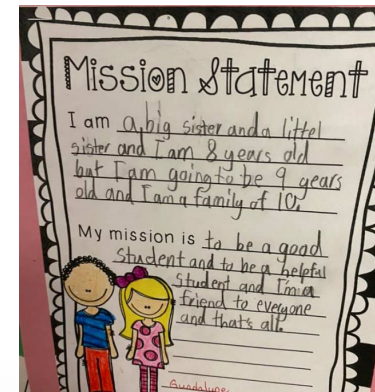 Mission Statement
I am a big sister and a littel
sister and I am 8 years old
but I am going to be 9 years
old and I am a family of 10.
My mission is to be a good
student and to be a helpful
student and I'm a
friend to everyone
and that's all.
Guadalupe